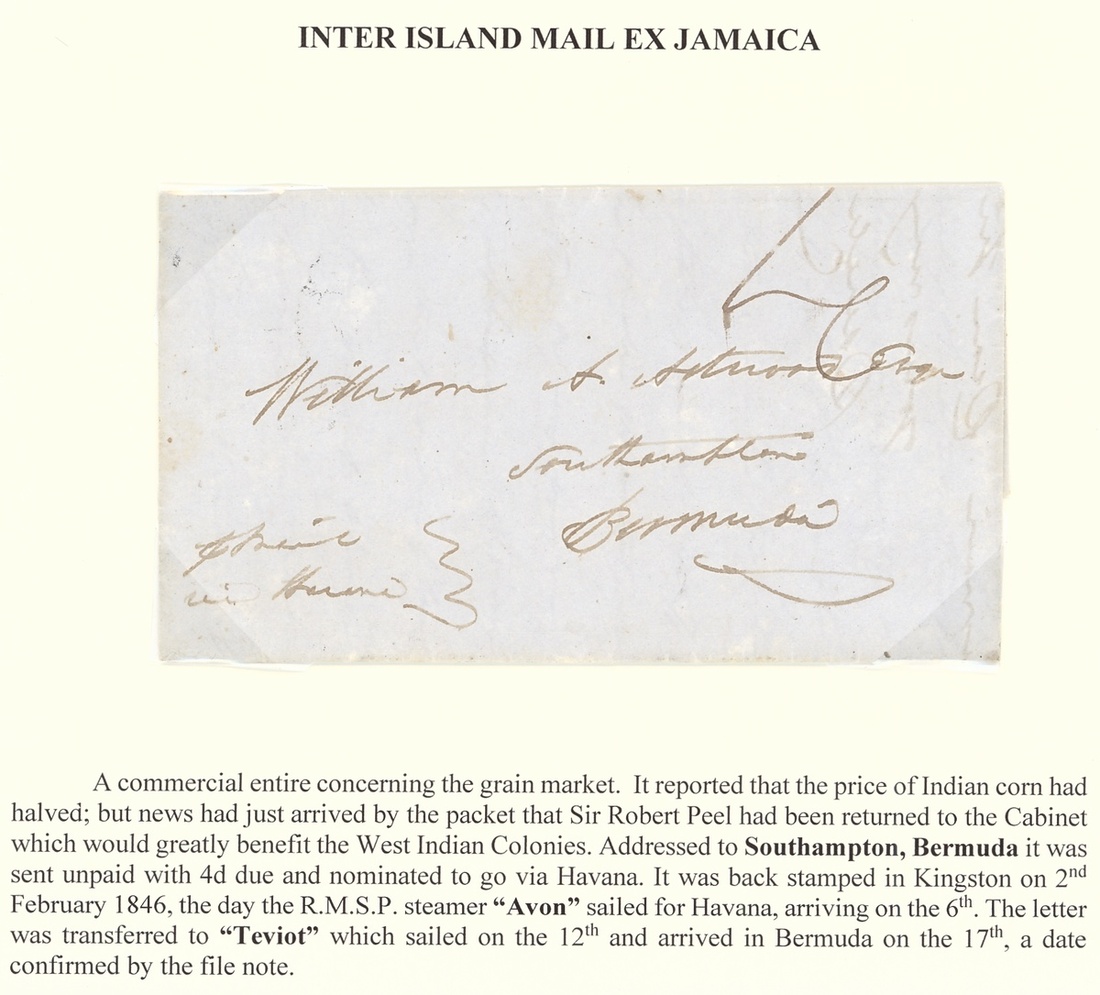 INTER ISLAND MAIL EX JAMAICA
William A. Astwood Esqr
Southampton
Bermuda
via Havana
A commercial entire concerning the grain market. It reported that the price of Indian corn had
halved; but news had just arrived by the packet that Sir Robert Peel had been returned to the Cabinet
which would greatly benefit the West Indian Colonies. Addressed to Southampton, Bermuda it was
sent unpaid with 4d due and nominated to go via Havana. It was back stamped in Kingston on 2nd
February 1846, the day the R.M.S.P. steamer “Avon” sailed for Havana, arriving on the 6th. The letter
was transferred to “Teviot” which sailed on the 12th and arrived in Bermuda on the 17th, a date
confirmed by the file note.